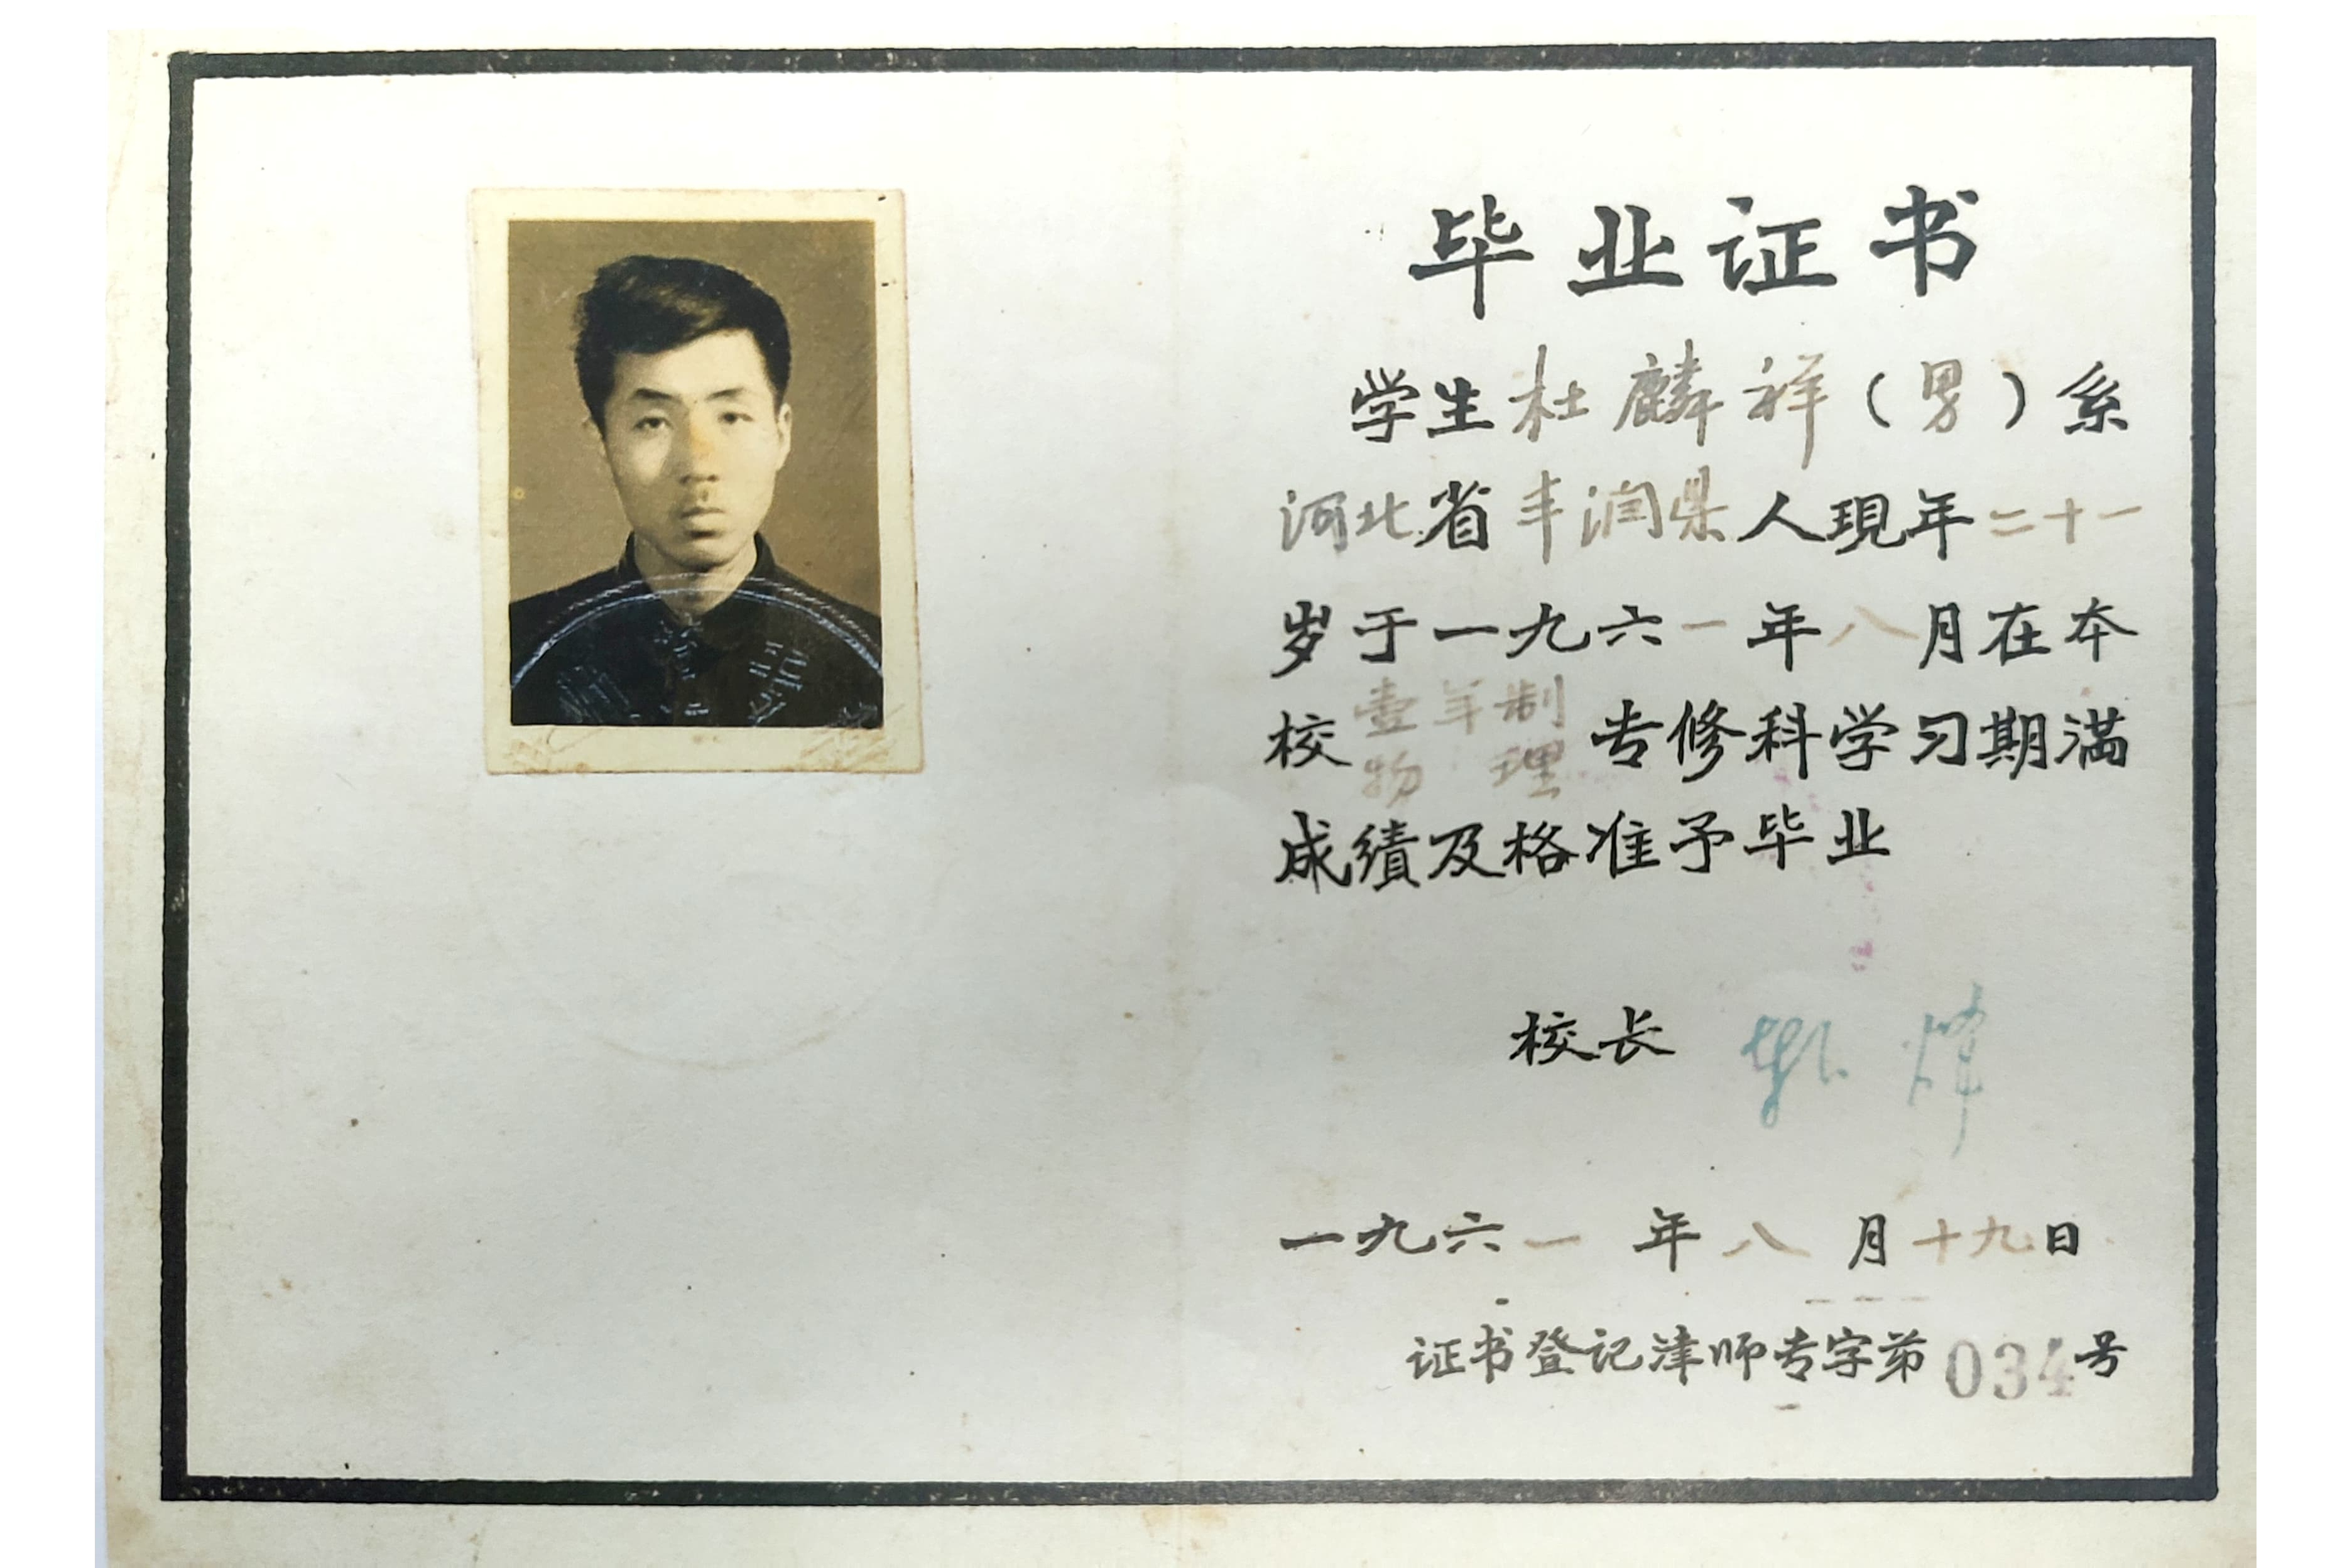 毕业证书
学生杜麟祥（男）系
河北省丰润県人現年二十一
岁于一九六一年八月在本
校壹年制物理专修科学习期满
成績及格准予毕业
校长
一九六一年八月十九日
证书登记津师专字第034号